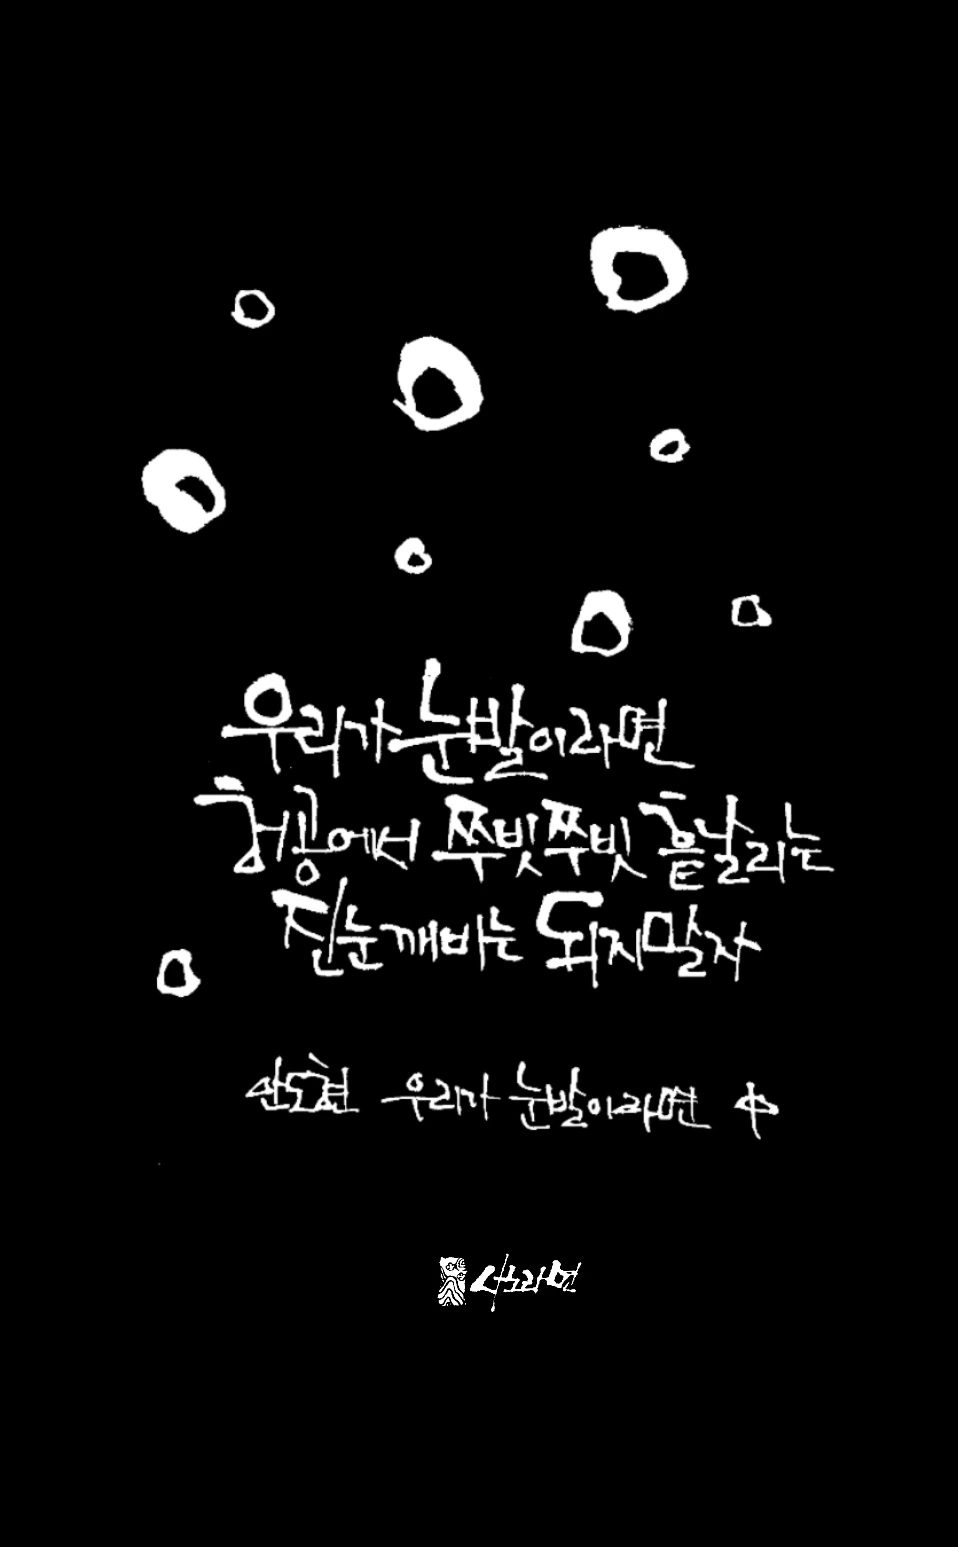 우리가 눈발이라면
허공에서 쭈빗쭈빗 흩날리는
진눈깨비는 되지말자
안도현 우리가 눈발이라면 中